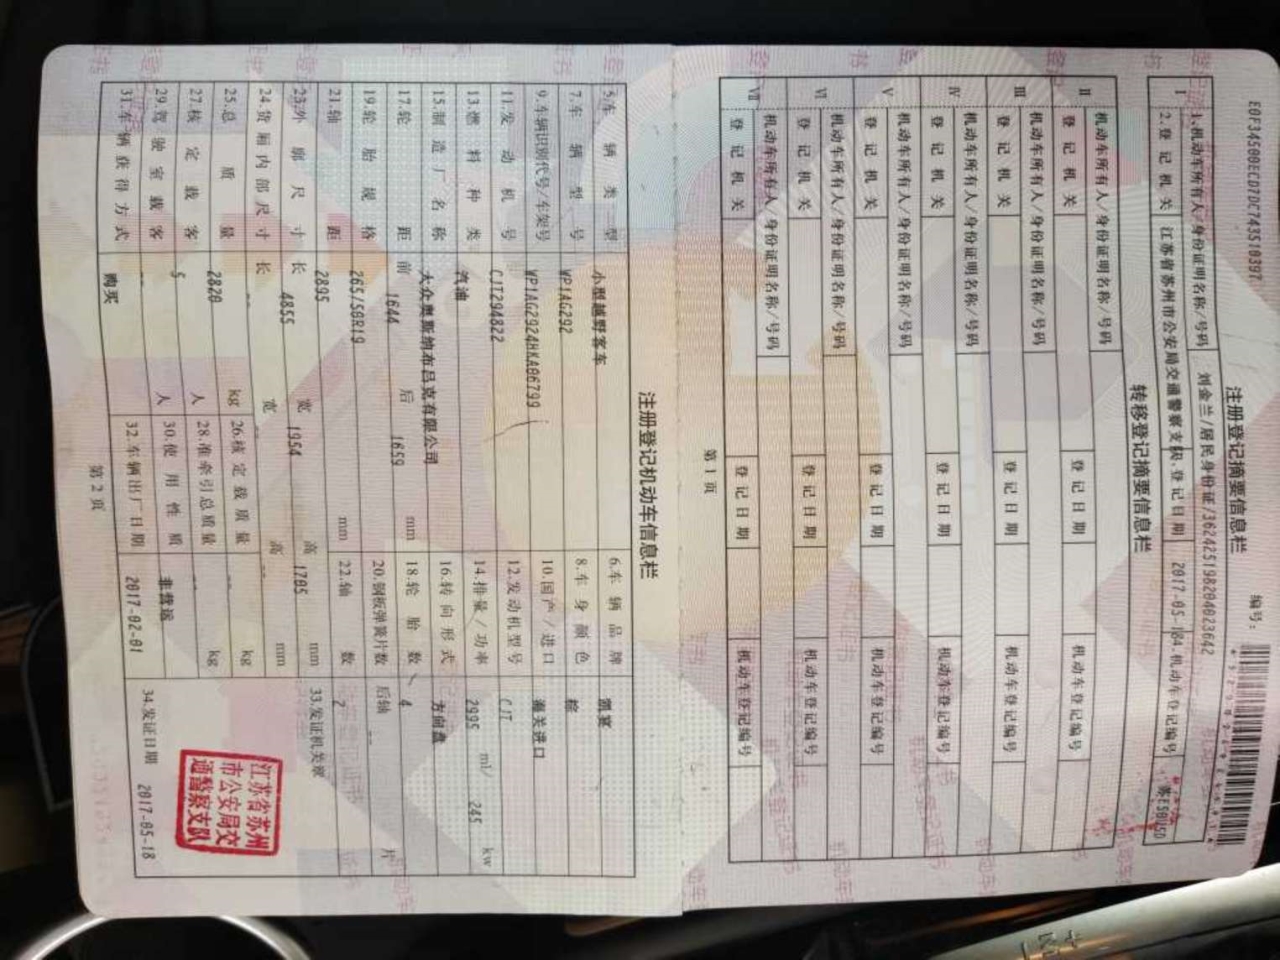 E0F34500ECD7DC743510397
编号:
注册登记摘要信息栏
I
1.机动车所有人/身份证明名称/号码 刘金兰/居民身份证/362425198204023642
2.登记机关 江苏省苏州市公安局交通警察支队 3.登记日期 2017-05-18 4.机动车登记编号 苏E5B0SD
转移登记摘要信息栏
II 机动车所有人/身份证明名称/号码
登记机关 登记日期 机动车登记编号
III 机动车所有人/身份证明名称/号码
登记机关 登记日期 机动车登记编号
IV 机动车所有人/身份证明名称/号码
登记机关 登记日期 机动车登记编号
V 机动车所有人/身份证明名称/号码
登记机关 登记日期 机动车登记编号
VI 机动车所有人/身份证明名称/号码
登记机关 登记日期 机动车登记编号
VII 机动车所有人/身份证明名称/号码
登记机关 登记日期 机动车登记编号
第1页
注册登记机动车信息栏
5.车辆类型 小型越野客车 6.车辆品牌 凯宴
7.车辆型号 WP1AG292 8.车身颜色 棕
9.车辆识别代号/车架号 WP1AG2924HKA06799 10.国产/进口 海关进口
11.发动机号 CJT294822 12.发动机型号 CJT
13.燃料种类 汽油 14.排量/功率 2995 ml/ 245 kw
15.制造厂名称 大众奥斯纳布吕克有限公司 16.转向形式 方向盘
17.轮距 前 1644 后 1659 mm 18.轮胎数 4
19.轮胎规格 265/50R19 20.钢板弹簧片数 后轴 -- 片
21.轴距 2895 mm 22.轴数 2
23.外廓尺寸 长 4855 宽 1954 高 1705 mm 33.发证机关章
24.货厢内部尺寸 长 -- 宽 -- 高 -- mm
25.总质量 2820 kg 26.核定载质量 -- kg
27.核定载客 5 人 28.准牵引总质量 -- kg
29.驾驶室载客 -- 人 30.使用性质 非营运
31.车辆获得方式 购买 32.车辆出厂日期 2017-02-01 34.发证日期 2017-05-18
江苏省苏州
市公安局交
通警察支队
第2页